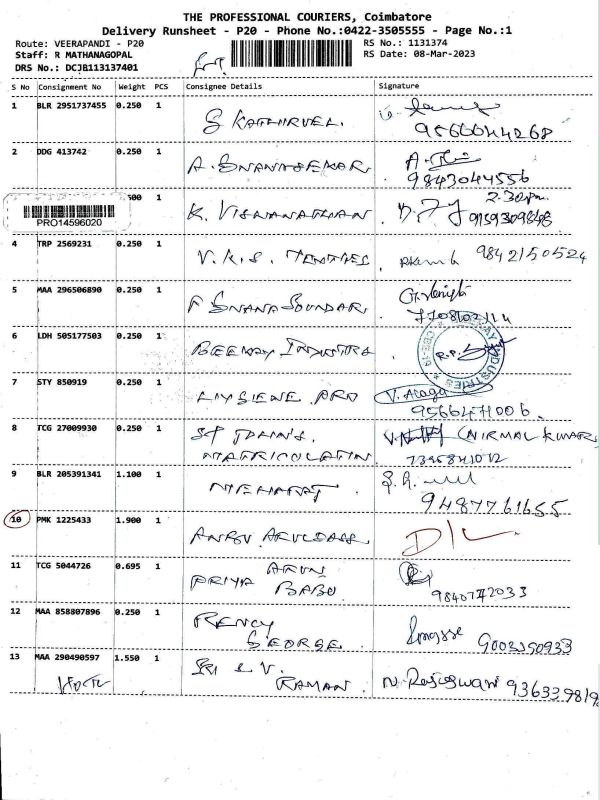 THE PROFESSIONAL COURIERS, Coimbatore
Delivery Runsheet - P20 - Phone No.:0422-3505555 - Page No.:1
Route: VEERAPANDI - P20 RS No.: 1131374
Staff: R MATHANAGOPAL RS Date: 08-Mar-2023
DRS No.: DCJB113137401
S No Consignment No Weight PCS Consignee Details Signature
1 BLR 2951737455 0.250 1
S KATHIRVEL.
9566044268
2 DDG 413742 0.250 1
A. GNANASEKAR
9843044556
500 1 2.30pm
K. VISWANATHAN 9159309848
PRO14596020
4 TRP 2569231 0.250 1
V.K.S. TEXTILES 9842150524
5 MAA 296506890 0.250 1
GNANA SOUNDARI
6 LDH 505177503 0.250 1
BEEWAY INDUSTRIES R.P.
INDUSTRIES
7 STY 850919 0.250 1
HYGIENE PRO
9566471006.
8 TCG 27009930 0.250 1
ST JOHN'S (NIRMAL KUMAR)
MATRICULATION 7395841012
9 BLR 205391341 1.100 1
9487761655
10 PMK 1225433 1.900 1
ANBU ARULDASS D/L
11 TCG 5044726 0.695 1
PRIYA ARUN
BABU 9840772033
12 MAA 858807896 0.250 1
RENCY
GEORGE 9003250933
13 MAA 290490597 1.550 1
SRI L.V.
RAMAN N. Rajeswari 936339819